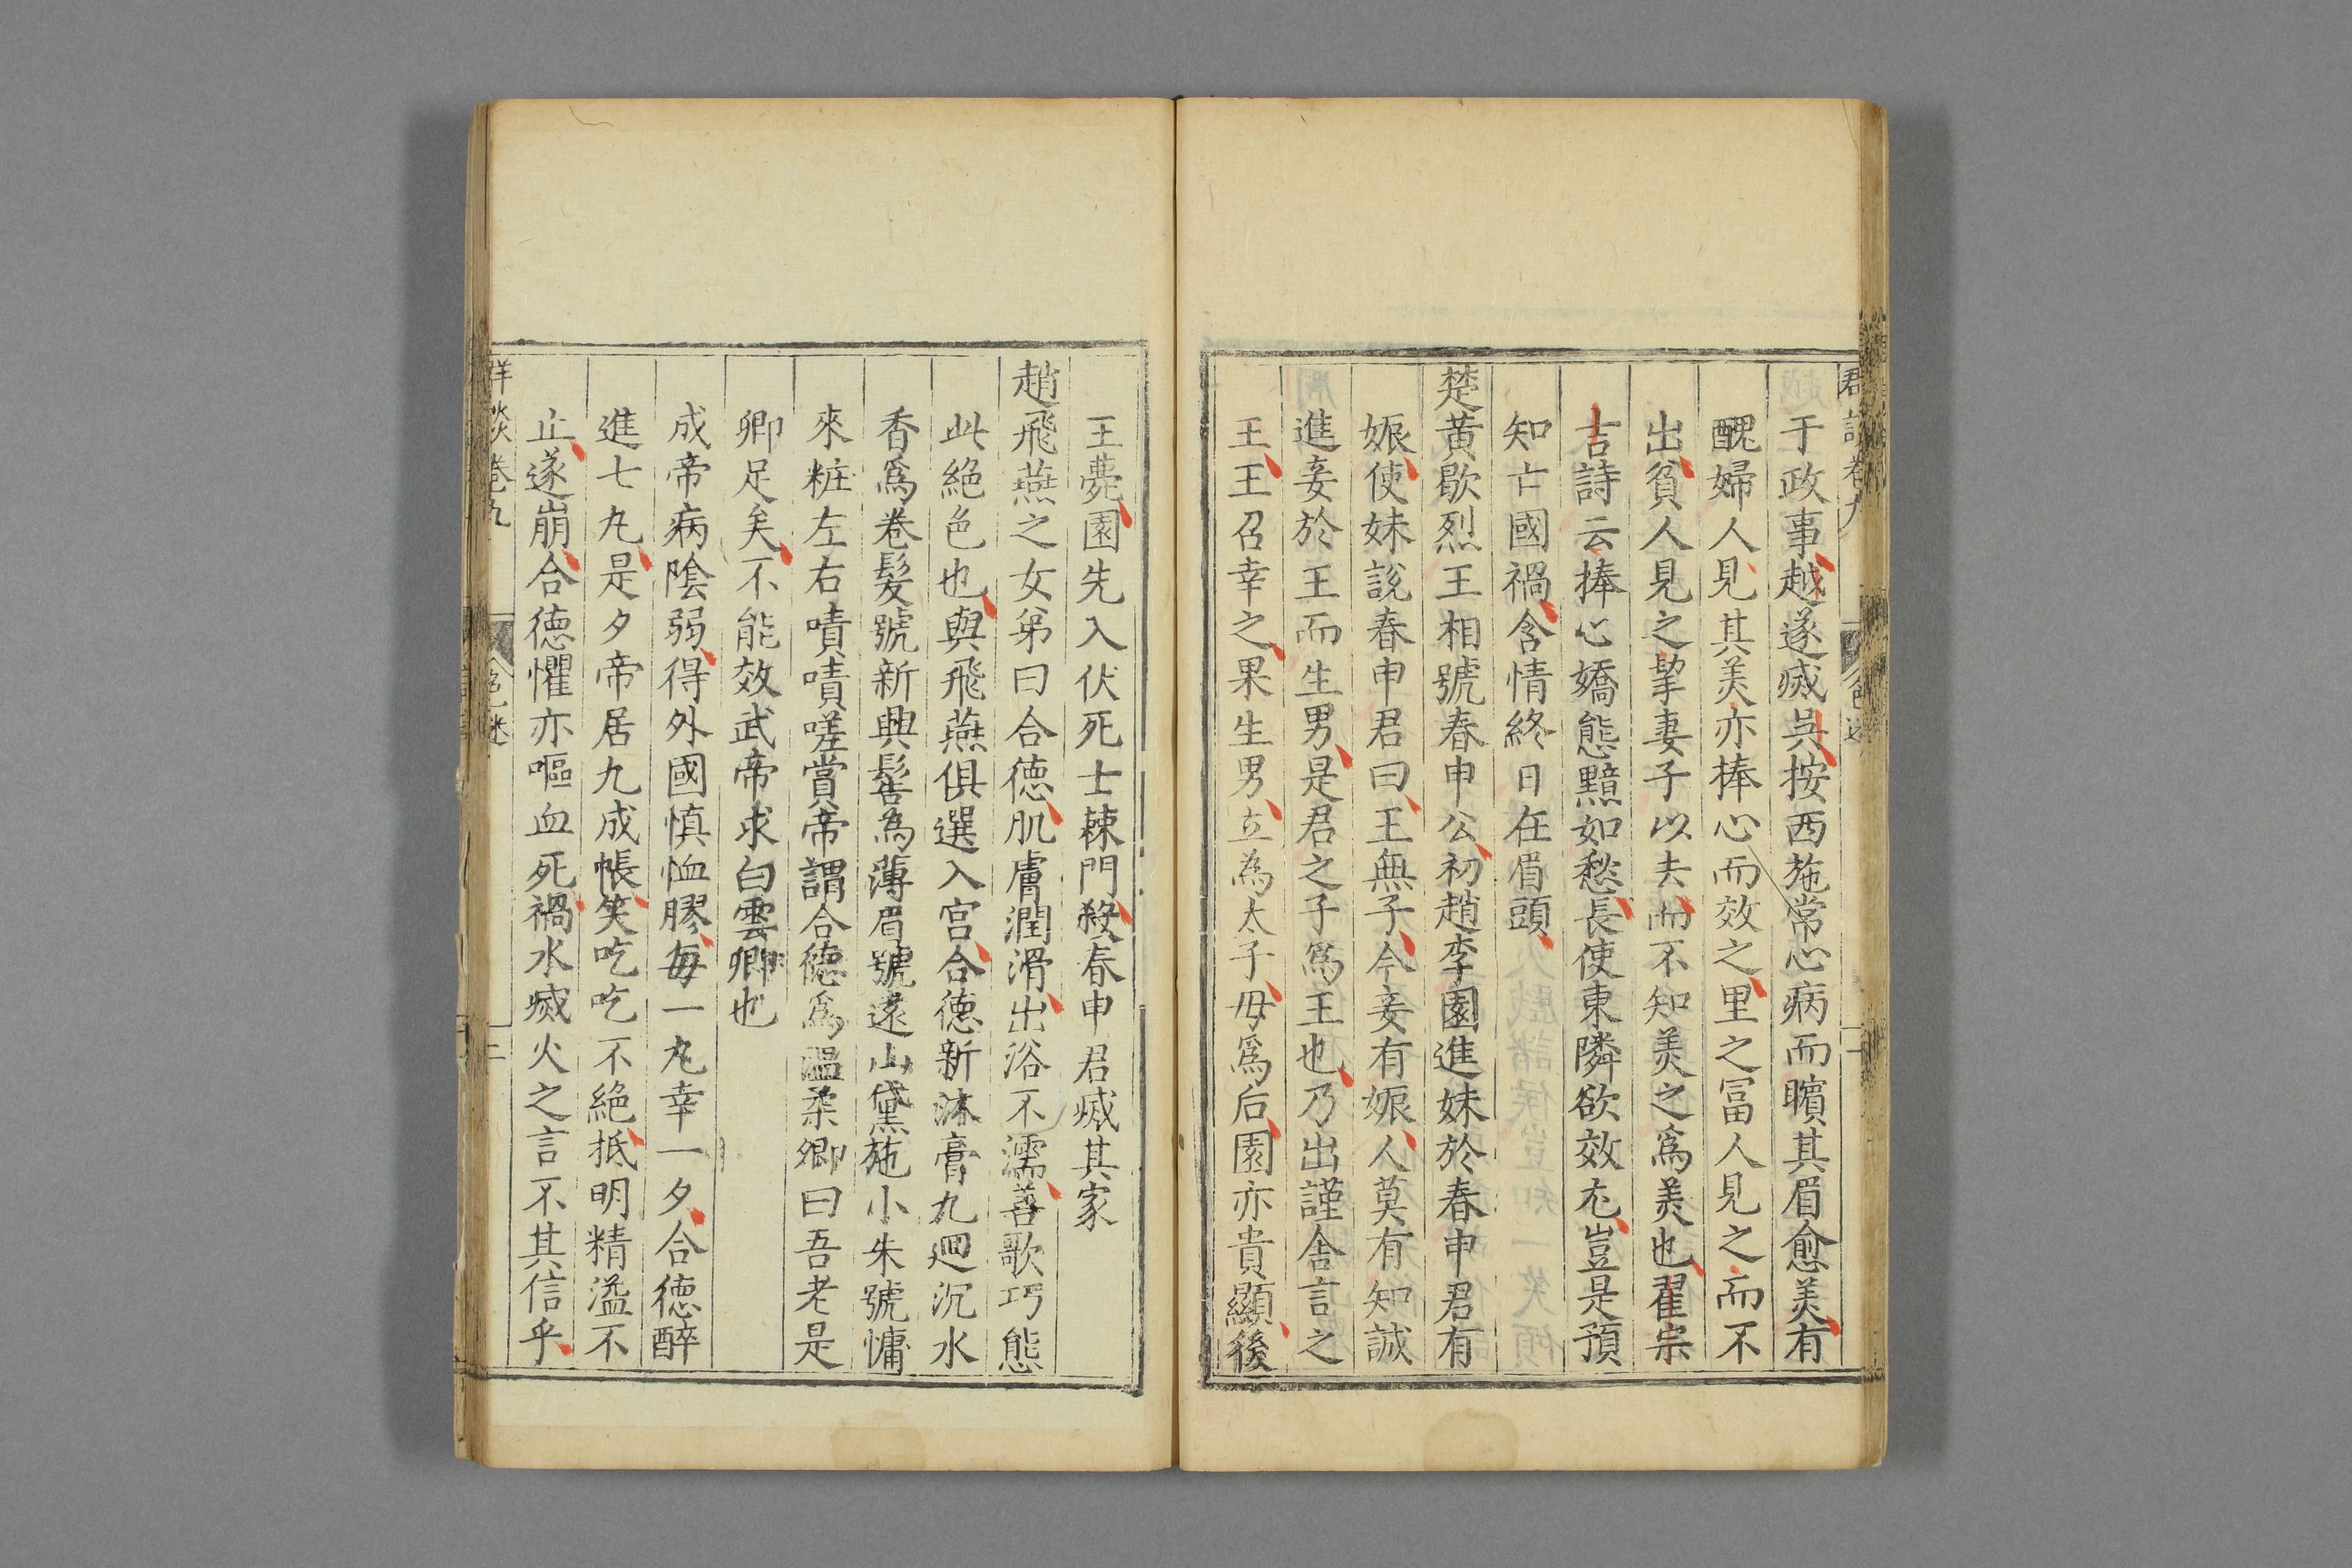 于政事越遂滅吳按西施常心病而矉其眉愈美有
醜婦人見其美亦捧心而效之里之冨人見之而不
出貧人見之挈妻子以去而不知美之爲美也翟宗
吉詩云捧心嬌態黯如愁長使東隣欲效尤豈是預
知亡國禍含情終日在眉頭
楚黃歇烈王相號春申公初趙李園進妹於春申君有
娠使妹說春申君曰王無子今妾有娠人莫有知誠
進妾於王而生男是君之子爲王也乃出謹舍言之
王王召幸之果生男立為太子母爲后園亦貴顯後
王薨園先入伏死士棘門殺春申君滅其家
趙飛燕之女弟曰合德肌膚潤滑出浴不濡善歌巧態
此絕色也與飛燕俱選入宮合德新沐膏九迴沉水
香爲卷髮號新興髻為薄眉號遠山黛施小朱號慵
來粧左右嘖嘖嗟賞帝謂合德爲溫柔卿曰吾老是
卿足矣不能效武帝求白雲卿也
成帝病陰弱得外國慎恤膠每一丸幸一夕合德醉
進七丸是夕帝居九成帳笑吃吃不絕抵明精溢不
止遂崩合德懼亦嘔血死禍水滅火之言不其信乎
卷九